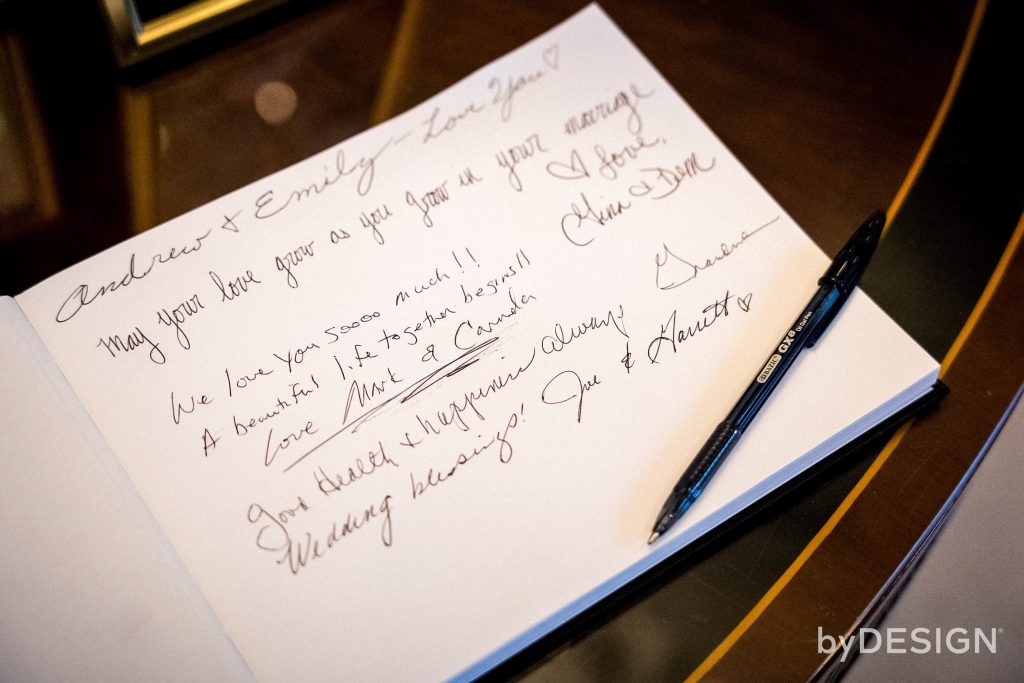 Andrew + Emily - Love You ♡
May your love grow as you grow in your marriage
♡ Love,
Gina & Dom
We love you soooo much!!
A beautiful life together begins!!
Love Mark & Carinda
Grandma
Good Health & happiness always
Wedding blessings! Joe & Garrett ♡
GX8
Gel Pen
byDESIGN